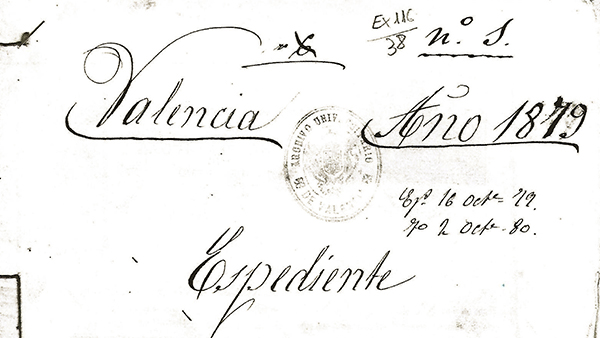 Ex 116
38
nº 1.
Valencia Año 1879
ARCHIVO UNIVERSITARIO
DE VALENCIA
16 Octe 79.
2 Octe 80.
Espediente